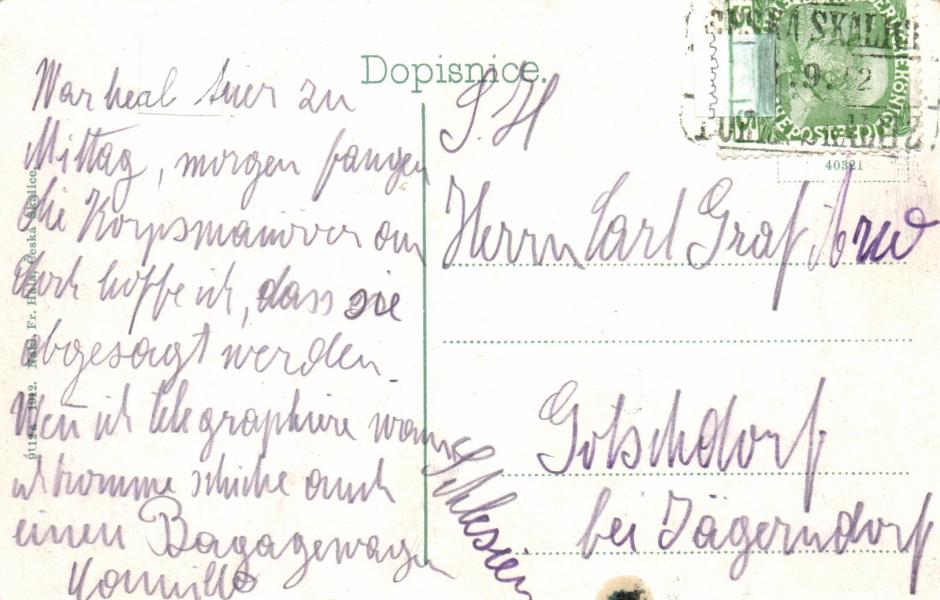 Dopisnice.
War heut hier zu
Mittag, morgen fangen
die Korpsmanöver an
doch hoffe ich, dass sie
abgesagt werden.
Wenn ich telegraphiere wann
ich komme schicke auch
einen Bagagewagen
S. H
Herrn Carl Graf
Gotschdorf
bei Jägerndorf
Schlesien
40321
9112 a 1912. Nakl. Fr. Hála, Česká Skalice.
ČESKÁ SKALICE